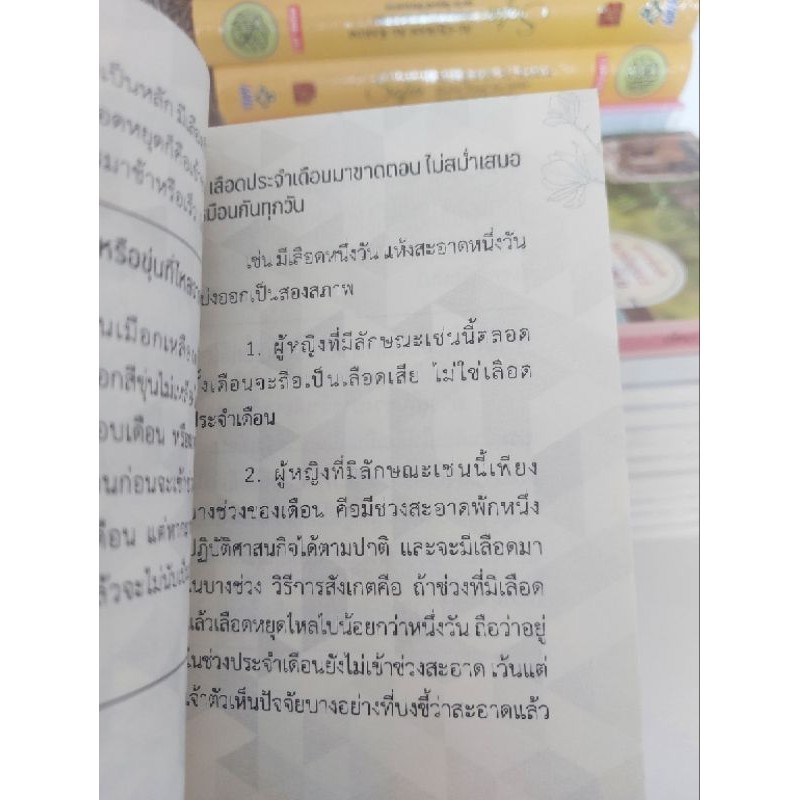 เป็นหลัก
มาช้าหรือเร็ว
หรือขุ่นที่ไหล
อบเดือน หรือ
นก่อนจะเข้า
ดือน แต่หาก
ล้วจะไม่นับ
เลือดประจำเดือนมาขาดตอน ไม่สม่ำเสมอ
หมือนกันทุกวัน
เช่น มีเลือดหนึ่งวัน แห้งสะอาดหนึ่งวัน
บ่งออกเป็นสองสภาพ
1. ผู้หญิงที่มีลักษณะเช่นนี้ตลอด
ทั้งเดือนจะถือเป็นเลือดเสีย ไม่ใช่เลือด
ประจำเดือน
2. ผู้หญิงที่มีลักษณะเช่นนี้เพียง
บางช่วงของเดือน คือมีช่วงสะอาดพักหนึ่ง
ปฏิบัติศาสนกิจได้ตามปกติ และจะมีเลือดมา
ในบางช่วง วิธีการสังเกตคือ ถ้าช่วงที่มีเลือด
แล้วเลือดหยุดไหลไปน้อยกว่าหนึ่งวัน ถือว่าอยู่
ในช่วงประจำเดือนยังไม่เข้าช่วงสะอาด เว้นแต่
เจ้าตัวเห็นปัจจัยบางอย่างที่บ่งชี้ว่าสะอาดแล้ว